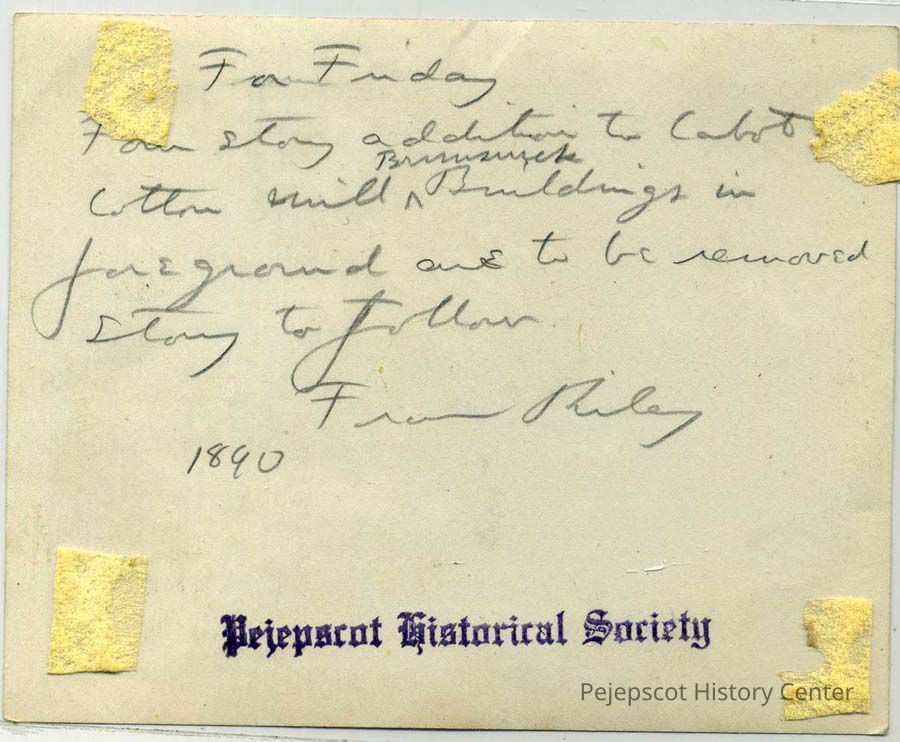 For Friday
Four story addition to Cabot
Brunswick
Cotton mill ^ Buildings in
foreground are to be removed
story to follow.
From Riley
1890
Pejepscot Historical Society
Pejepscot History Center